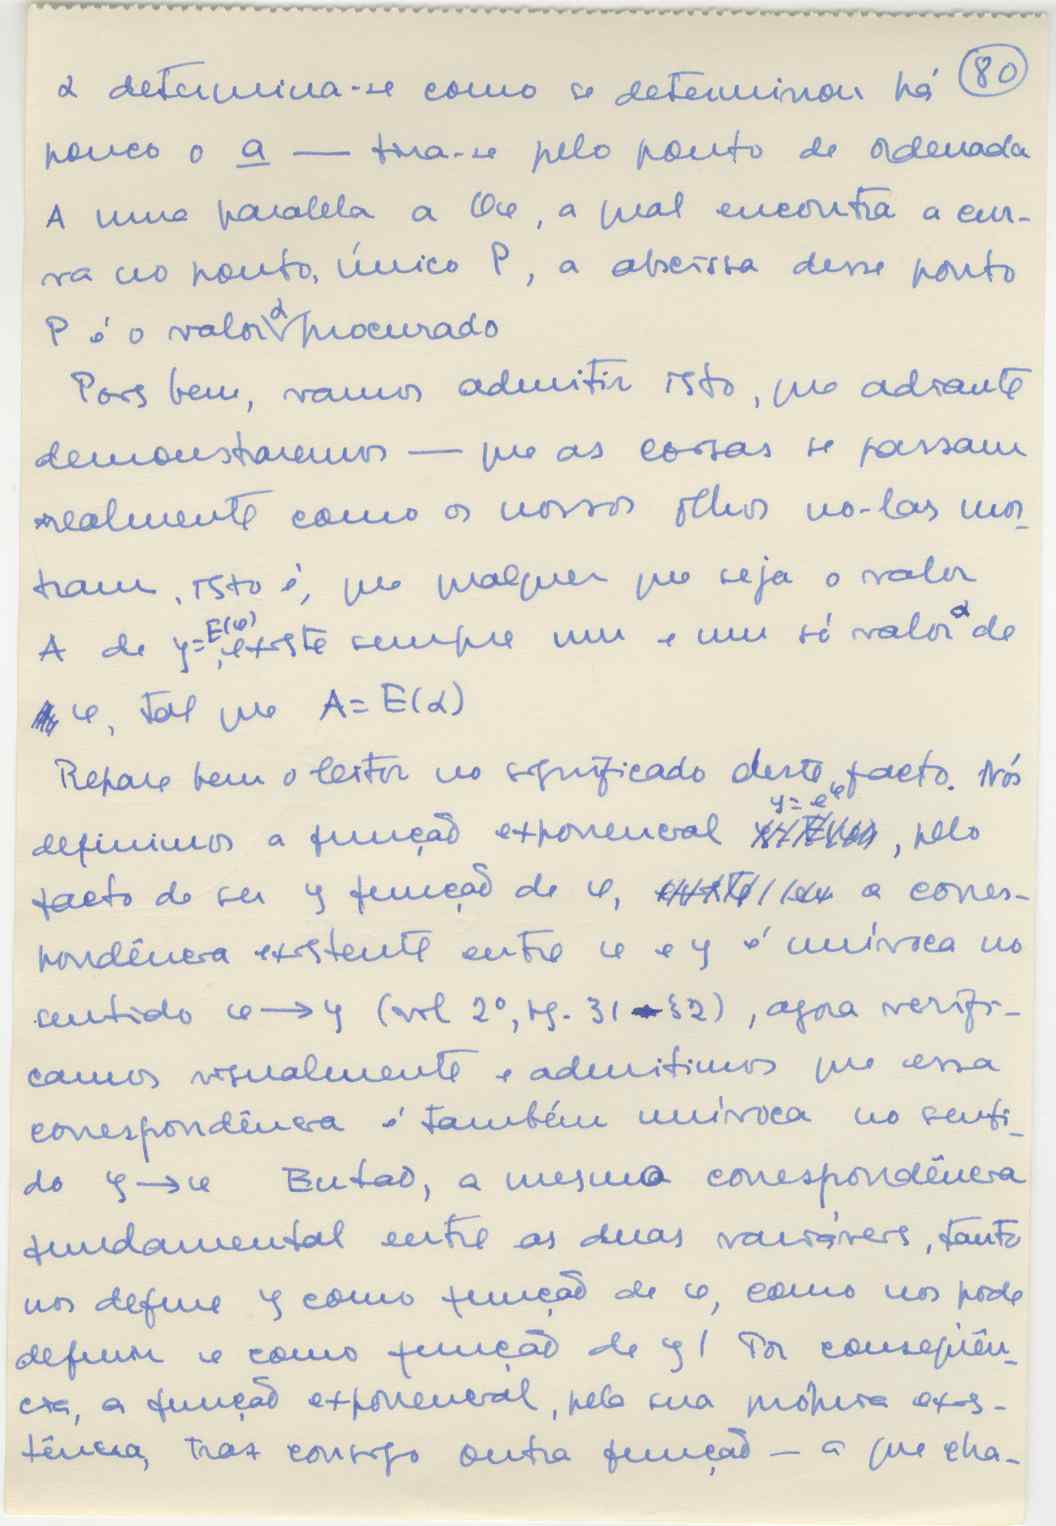 80
α determina-se como se determinou há
pouco o a — tira-se pelo ponto de ordenada
A uma paralela a Ox, a qual encontra a cur-
va no ponto, único P, a abcissa desse ponto
P é o valor α procurado
Pois bem, vamos admitir isto, que adiante
demonstraremos — que as coisas se passam
realmente como os nossos olhos no-las mos-
tram, isto é, que qualquer que seja o valor
A de y=E(x), existe sempre um e um só valor α de
x, tal que A = E(α)
Repare bem o leitor no significado deste facto. Nós
definimos a função exponencial y = eˣ, pelo
facto de ser y função de x, a corres-
pondência existente entre x e y é unívoca no
sentido x → y (vol 2º, pg. 31-32), agora verifi-
camos visualmente e admitimos que essa
correspondência é também unívoca no senti-
do y → x Então, a mesma correspondência
fundamental entre as duas variáveis, tanto
nos define y como função de x, como nos pode
definir x como função de y! Por conseqüên-
cia, a função exponencial, pela sua própria exis-
tência, traz consigo outra função — a que cha-